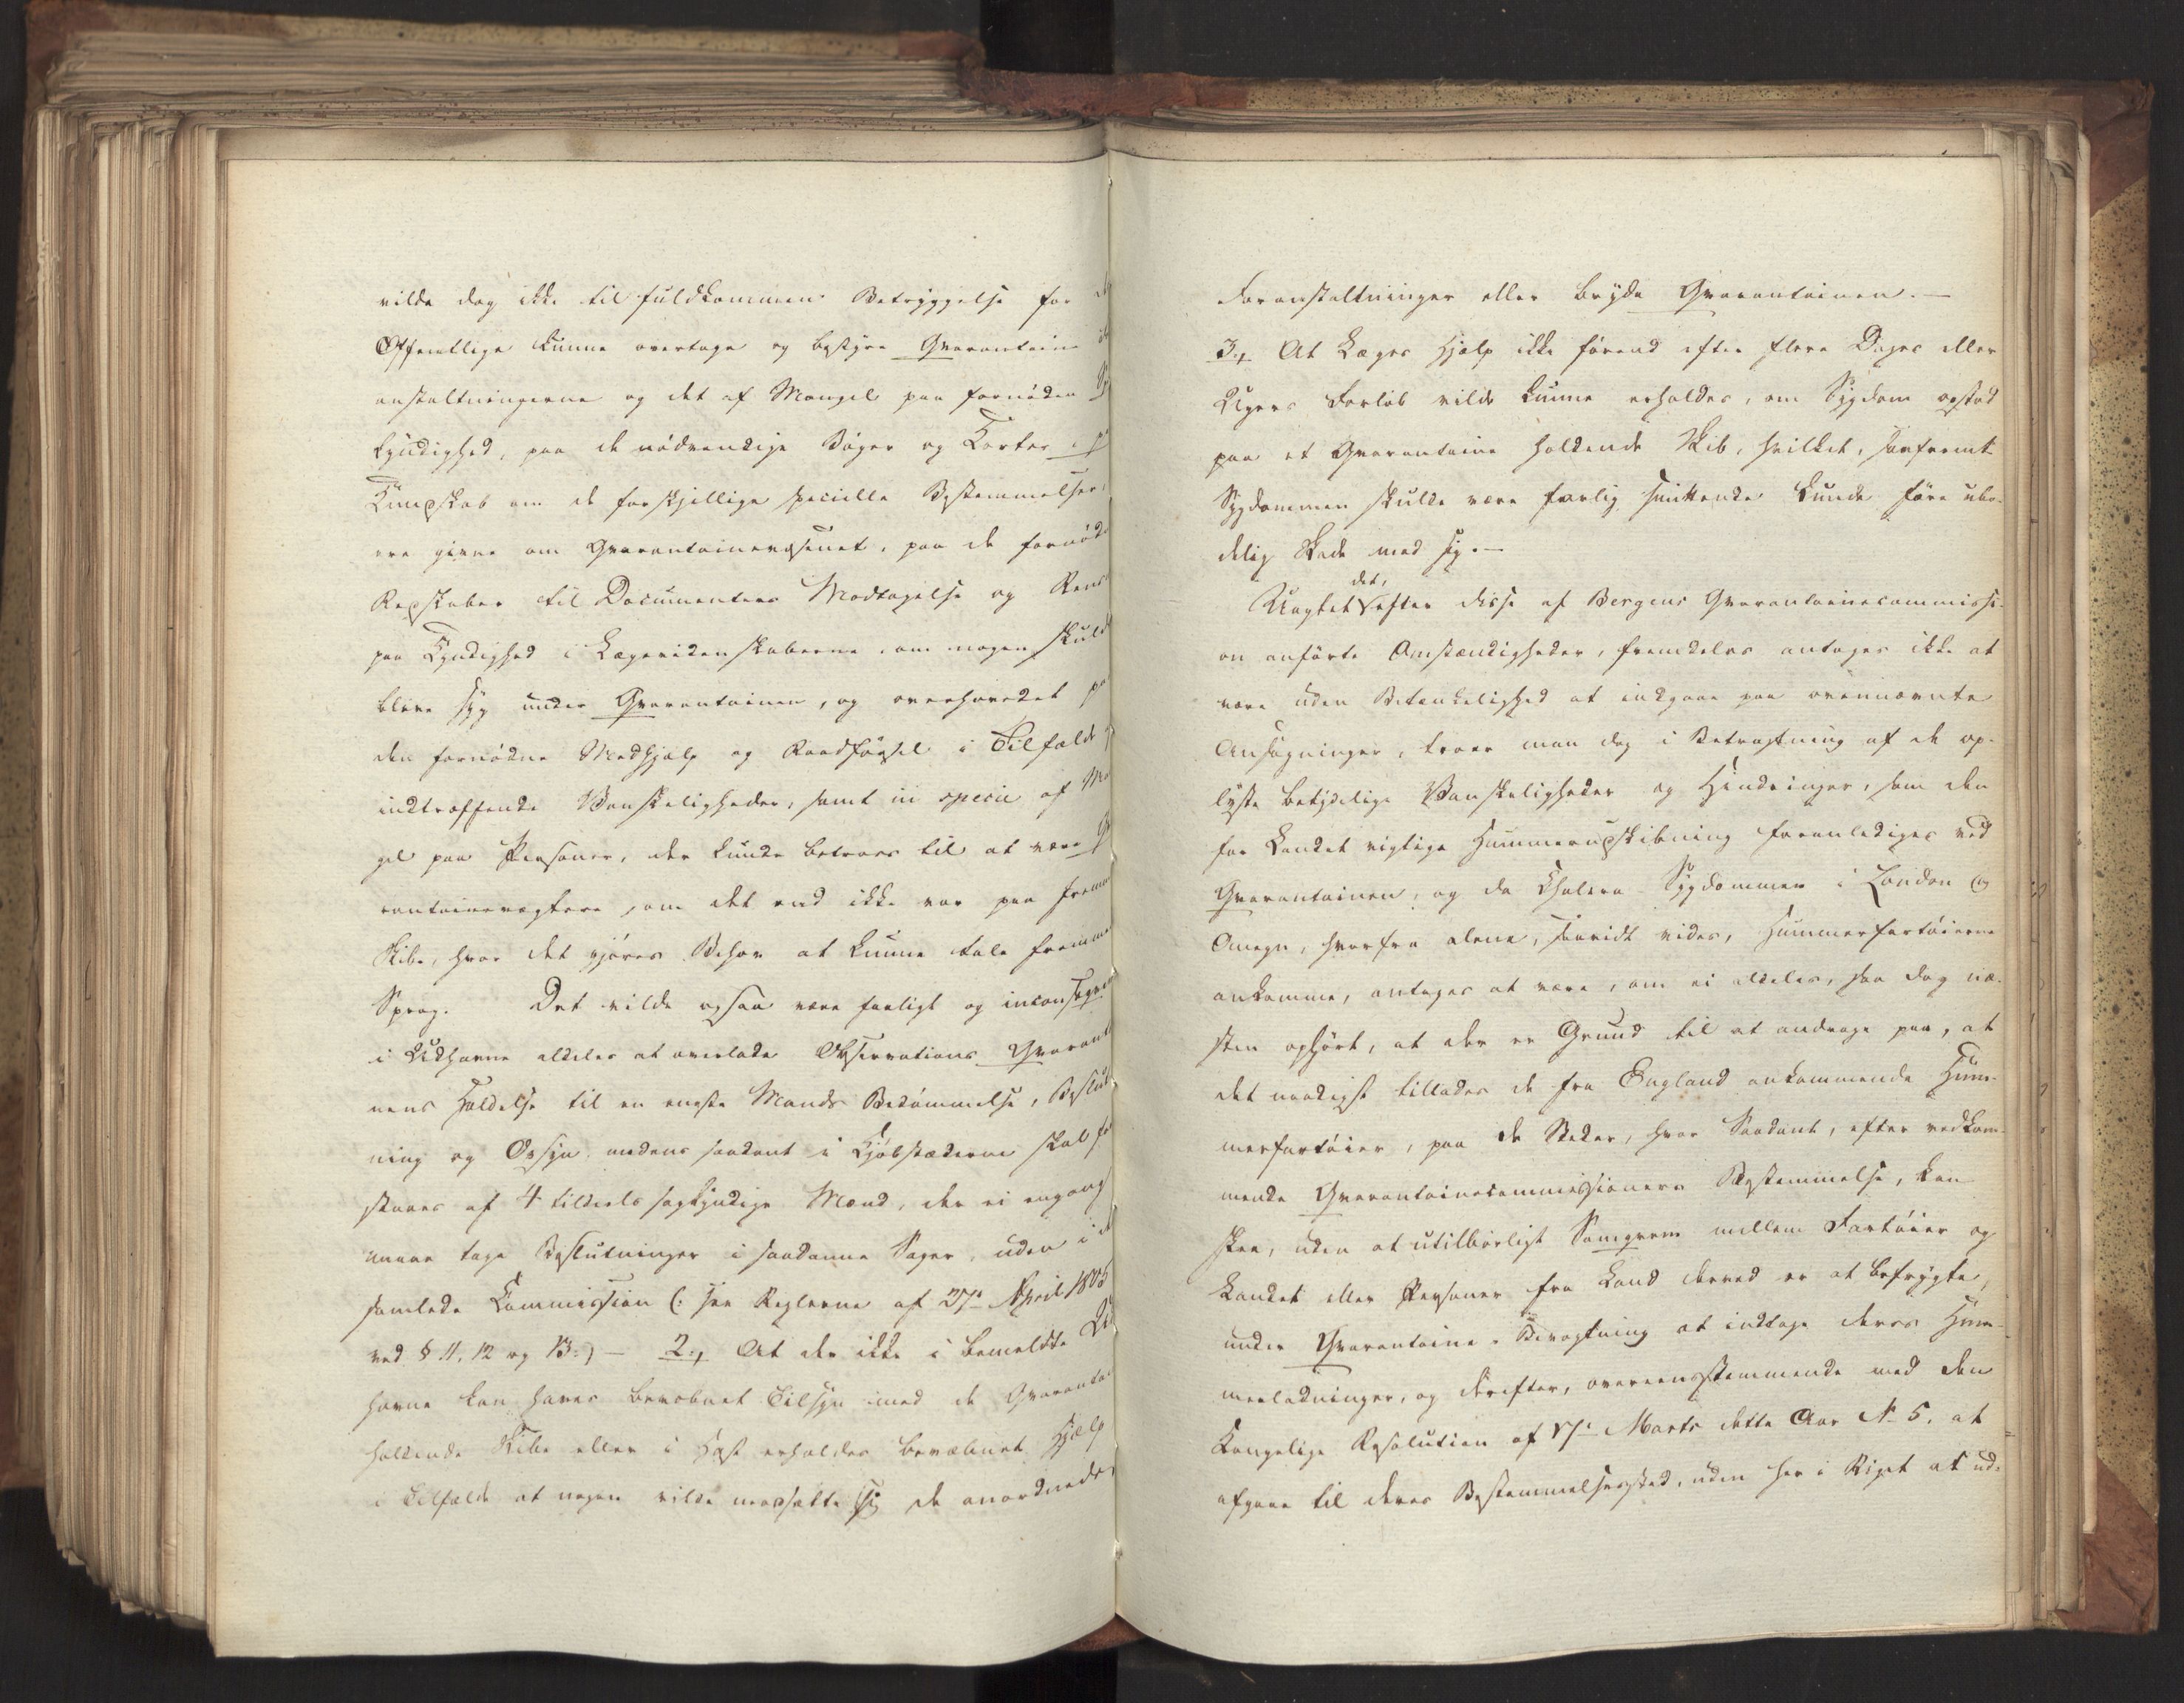 vilde dog ikke til fuldkommen Betryggelse for
Offentlige kunne overtage og bestyre Qvarantaine
anstaltningerne og det af Mangel paa fornøden
Kyndighed, paa de nødvendige Bøger og Karter,
Kundskab om de forskjellige specielle Bestemmelser,
ere givne om Qvarantainevæsenet, paa de fornødn
Redskaber til Documenters Modtagelse og Rens
paa Kyndighed i Lægevidenskaberne, om nogen skuld
blive syg under Qvarantainen, og overhovedet
den fornødne Medhjælp og Raadførsel i Tilfælde
indtræffende Vanskeligheder, samt in specie af
gel paa Personer, der kunde betroes til at være
rantainevægtere, om det end ikke var paa fremm
Skibe, hvor det gjøres Behov at kunne tale fremme
Sprog. Det vilde ogsaa være farligt og inconseqven
i Udhavne aldeles at overlade Observations Qvarant
nens Holdelse til en eneste Mands Bedømmelse, Beslut
ning og Opsyn, medens saadant i Kjøbstæderne skal
staaes af 4 tildeels sagkyndige Mænd, der ei engang
maae tage Beslutninger i saadanne Sager, uden i
samlede Commission (: see Reglerne af 27de April 1805
ved § 11, 12 og 13:) - 2., At der ikke i bemeldte
havne kan haves bevæbnet Tilsyn med de Qvaranta
holdende Skibe eller i Hast erholdes bevæbnet Hjælp
i Tilfælde at nogen vilde modsætte sig de anordnede
Foranstaltninger eller bryde Qvarantainen. -
3., At Læges Hjælp ikke førend efter flere Dages eller
Ugers Forløb vilde kunne erholdes, om Sygdom opstod
paa et Qvarantaine holdende Skib, hvilket, saafremt
Sygdommen skulde være farlig smittende kunde føre ubo-
delig Skade med sig. -
Uagtet det, efter disse af Bergens Qvarantainecommissi-
on anførte Omstændigheder, fremdeles antages ikke at
være uden Betænkelighed at indgaae paa ovennævnte
Ansøgninger, troer man dog i Betragtning af de op-
lyste betydelige Vanskeligheder og Hindringer, som den
for Landet vigtige Hummerudskibning foranlediges ved
Qvarantainen, og da Cholera Sygdommen i London og
Omegn, hvorfra alene, saavidt vides, Hummerfartøierne
ankomme, antages at være, om ei aldeles, saa dog næ-
sten ophørt, at der er Grund til at andrage paa, at
det naadigst tillades de fra England ankommende Hum-
merfartøier, paa de Steder, hvor Saadant, efter vedkom-
mende Qvarantainecommissioners Bestemmelse, kan
skee, uden at utilbørligt Samqvem mellem Fartøier og
Landet eller Personer fra Land derved er at befrygte,
under Qvarantaine-Bevogtning at indtage deres Hum-
merladninger, og derefter, overeensstemmende med den
Kongelige Resolution af 17de Marts dette Aar No 5. at
afgaae til deres Bestemmelsessted, uden her i Riget at ud-